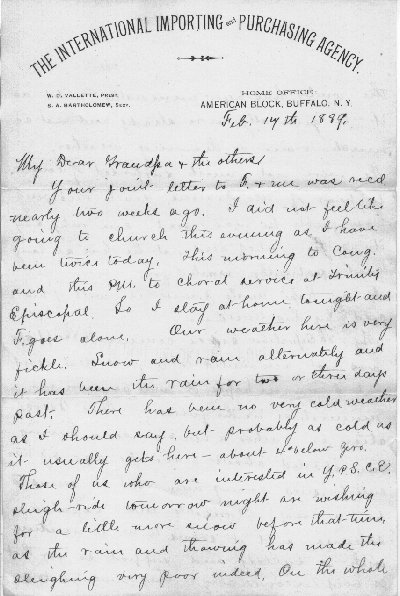 THE INTERNATIONAL IMPORTING and PURCHASING AGENCY.
W. C. VALLETTE, PREST.
S. A. BARTHOLOMEW, SECY.
HOME OFFICE:
AMERICAN BLOCK, BUFFALO, N. Y.
Feb. 17th 1889.
My Dear Grandpa & the others/
Your joint letter to F. & me was recd
nearly two weeks ago. I did not feel like
going to church this evening as I have
been twice today, this morning to Cong.
and this P.M. to choral service at Trinity
Episcopal So I stay at home tonight and
F. goes alone. Our weather here is very
fickle. Snow and rain alternately and
it has been the rain for two or three days
past. There has been no very cold weather
as I should say, but probably as cold as
it usually gets here - about below zero.
Those of us who are interested in Y.P.S.C.E.
sleigh-ride tomorrow night are wishing
for a little more snow before that time,
as the rain and thawing has made the
sleighing very poor indeed. On the whole